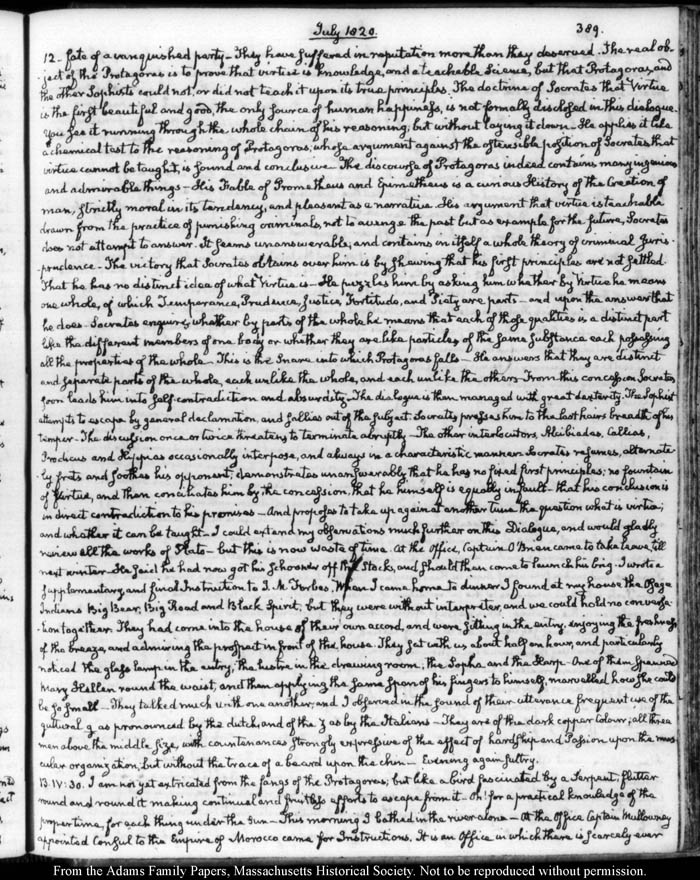 July 1820.
389.
12. fate of a vanquished party – They have suffered in reputation more than they deserved. The real ob-
-ject of the Protagoras is to prove that virtue is knowledge, and a teachable Science, but that Protagoras, and
the other Sophists could not, or did not teach it upon its true principles. The doctrine of Socrates that Virtue
is the first beautiful and good, the only source of human happiness, is not formally disclosed in this dialogue.
You see it running through the whole chain of his reasoning, but without laying it down – He applies it like
a chemical test to the reasoning of Protagoras, whose argument against the ostensible position of Socrates that
virtue cannot be taught, is sound and conclusive – The discourse of Protagoras indeed contains many ingenious
and admirable things – His Fable of Prometheus and Epimetheus is a curious History of the Creation of
man, strictly moral in its tendency, and pleasant as a narrative. His argument that virtue is teachable
drawn from the practice of punishing criminals, not to avenge the past but as example for the future, Socrates
does not attempt to answer. It seems unanswerable, and contains in itself a whole theory of criminal Juris-
-prudence – The victory that Socrates obtains over him is by shewing that his first principles are not settled.
That he has no distinct idea of what Virtue is – He puzzles him by asking him whether by Virtue he means
one whole, of which Temperance, Prudence, Justice, Fortitude, and Piety are parts – and upon the answer that
he does – Socrates enquires whether by parts of the whole he means that each of those qualities is a distinct part
like the different members of one body or whether they are like particles of the same substance each possessing
all the properties of the whole – This is the Snare into which Protagoras falls – He answers that they are distinct
and separate parts of the whole, each unlike the whole, and each unlike the others – From this concession Socrates
soon leads him into self-contradiction and absurdity – The dialogue is then managed with great dexterity. The Sophist
attempts to escape by general declamation, and sallies out of the subject. Socrates presses him to the last hairs breadth of his
temper – The discussion once or twice threatens to terminate abruptly – The other interlocutors, Alcibiades, Callias,
Prodicus and Hippias occasionally interpose, and always in a characteristic manner. Socrates resumes, alternate-
ly frets and soothes his opponent, demonstrates unanswerably that he has no fixed first principles; no fountain
of Virtue, and then conciliates him by the concession, that he himself is equally in fault – that his conclusion is
in direct contradiction to his premises – And proposes to take up again at another time the question what is virtue;
and whether it can be taught – I could extend my observations much further on this Dialogue, and would gladly
review all the works of Plato – but this is now waste of time. At the Office, Captain O'Brien came to take leave, till
next winter – He said he had now got his Schooner off the Stocks, and should then come to launch his brig. I wrote a
supplementary, and final Instruction to J. M. Forbes, When I came home to dinner I found at my house the Osage
Indians Big Bear, Big Road and Black Spirit, but they were without interpreter, and we could hold no conversa-
-tion together. They had come into the house of their own accord, and were sitting in the entry, enjoying the freshness
of the breeze, and admiring the prospect in front of the house. They sat with us about half an hour, and particularly
noticed the glass lamp in the entry, the lustre in the drawing room, the Sopha and the Harp – One of them spanned
Mary Hellen round the waist, and then applying the same span of his fingers to himself, marvelled how she could
be so small – They talked much with one another, and I observed in the sound of their utterance frequent use of the
guttural g as pronounced by the dutch, and of the z as by the Italians – They are of the dark copper colour; all three
men above the middle size, with countenances strongly expressive of the effect of hardship and Passion upon the mus-
cular organization, but without the trace of a beard upon the chin – Evening again sultry.
13. IV:30. I am not yet extricated from the fangs of the Protagoras; but like a bird fascinated by a Serpent, flitter
round and round it making continual and fruitless efforts to escape from it – Oh! for a practical knowledge of the
proper time, for each thing under the sun – This morning I bathed in the river alone – At the Office Captain Mullowney
appointed Consul to the Empire of Morocco came for Instructions. It is an Office in which there is scarcely ever
From the Adams Family Papers, Massachusetts Historical Society. Not to be reproduced without permission.